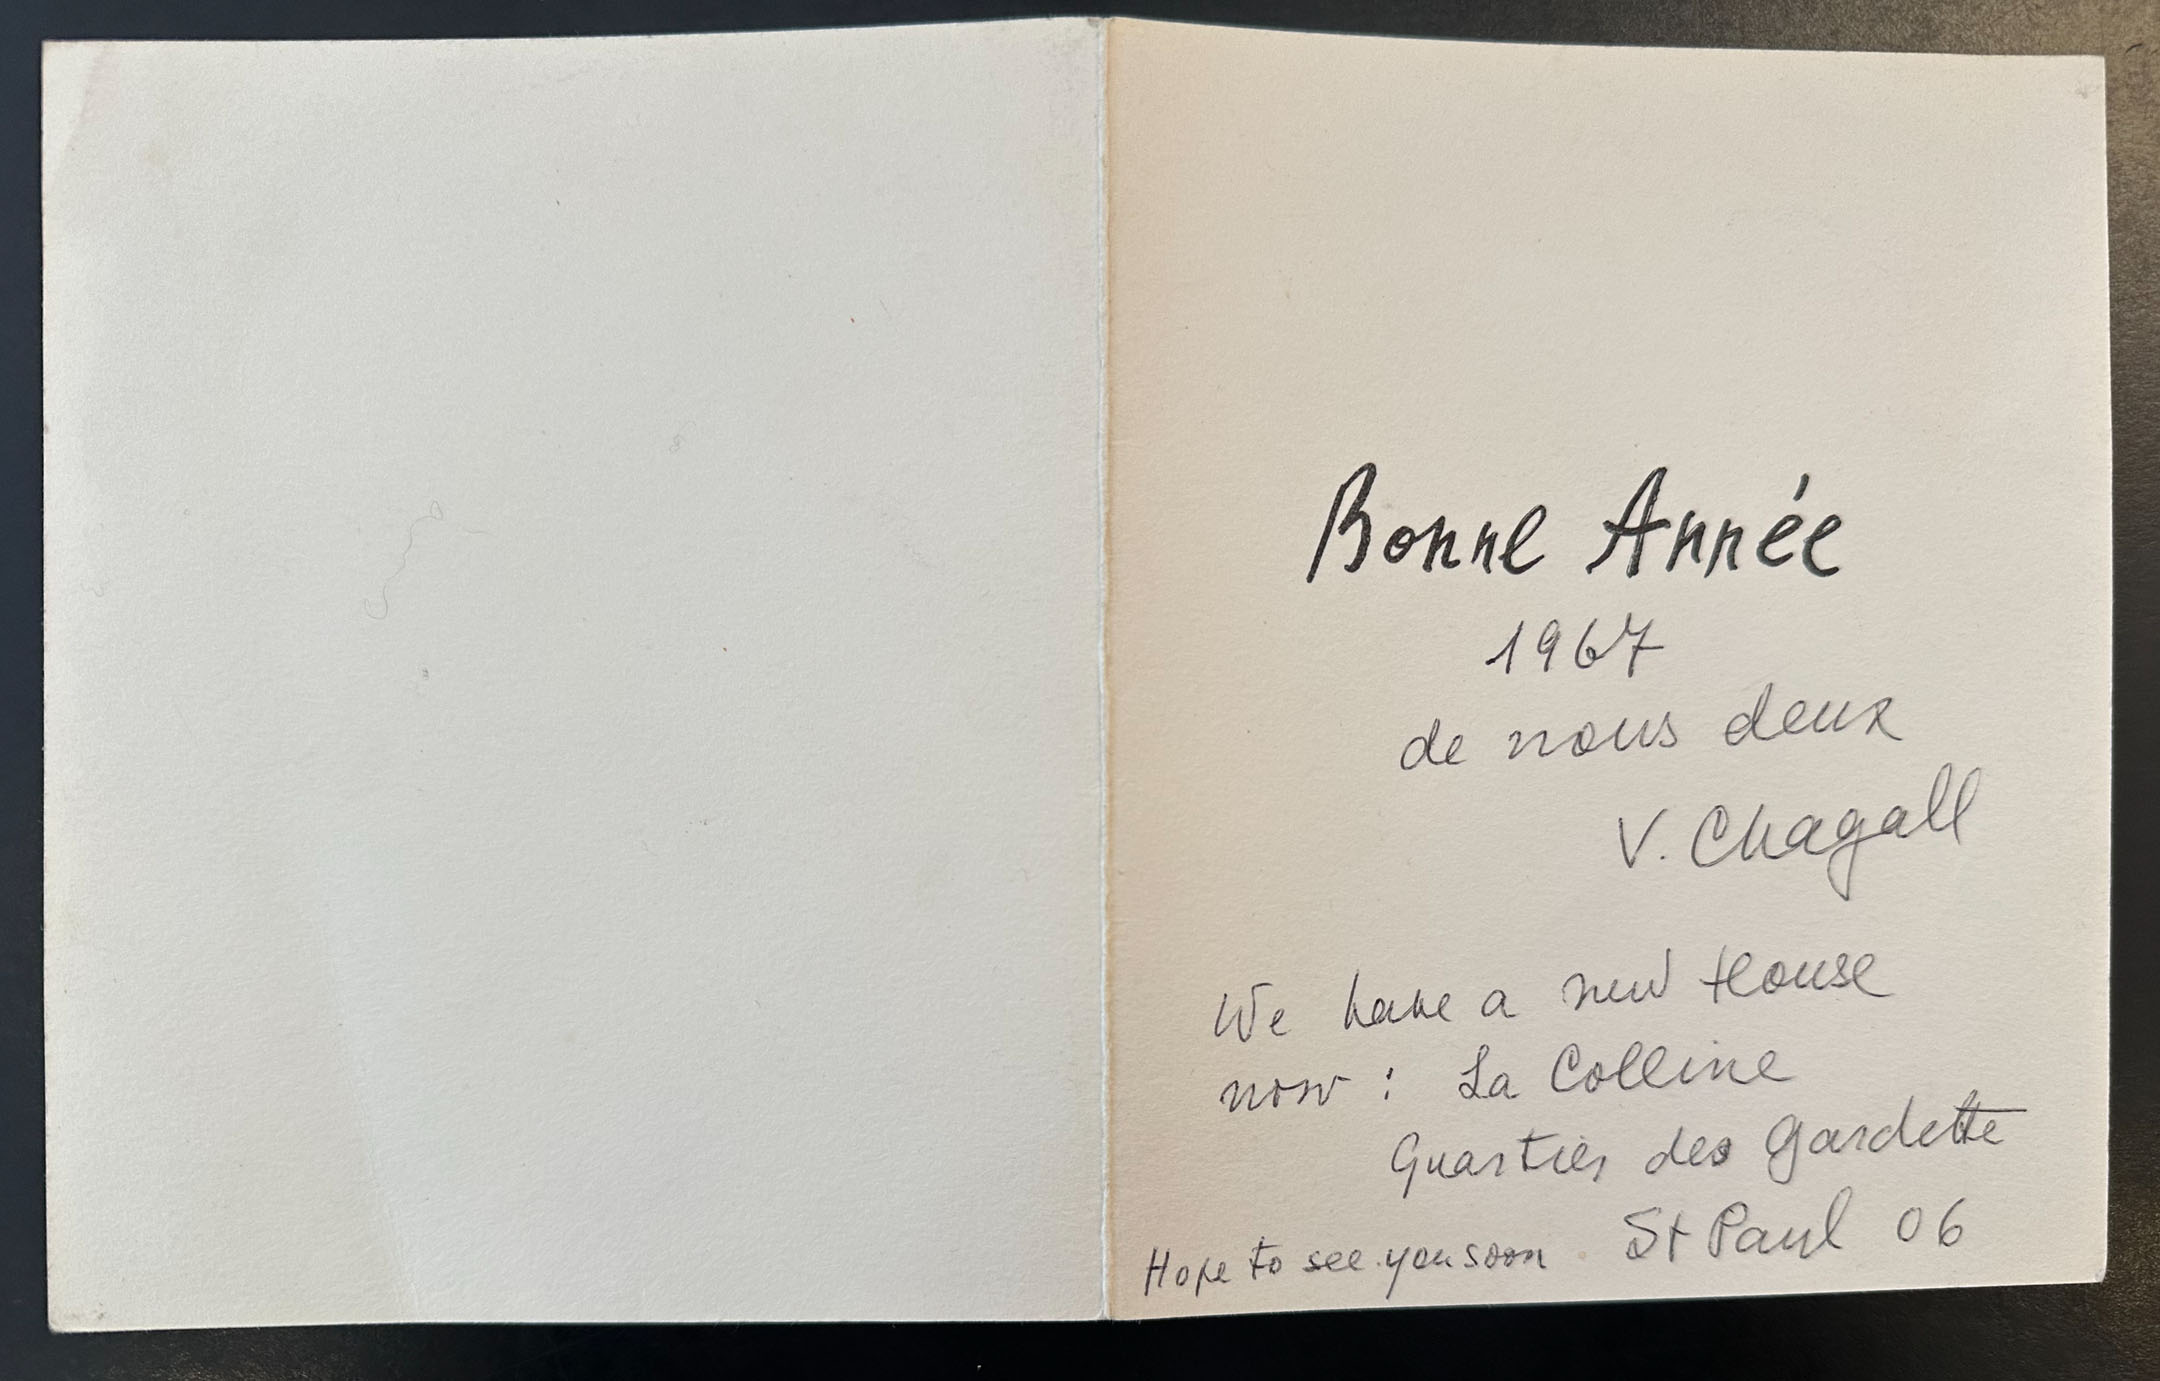 Bonne Année
1967
de nous deux
V. Chagall
We have a new House
now : La Colline
Quartier des Gardette
St Paul 06
Hope to see you soon